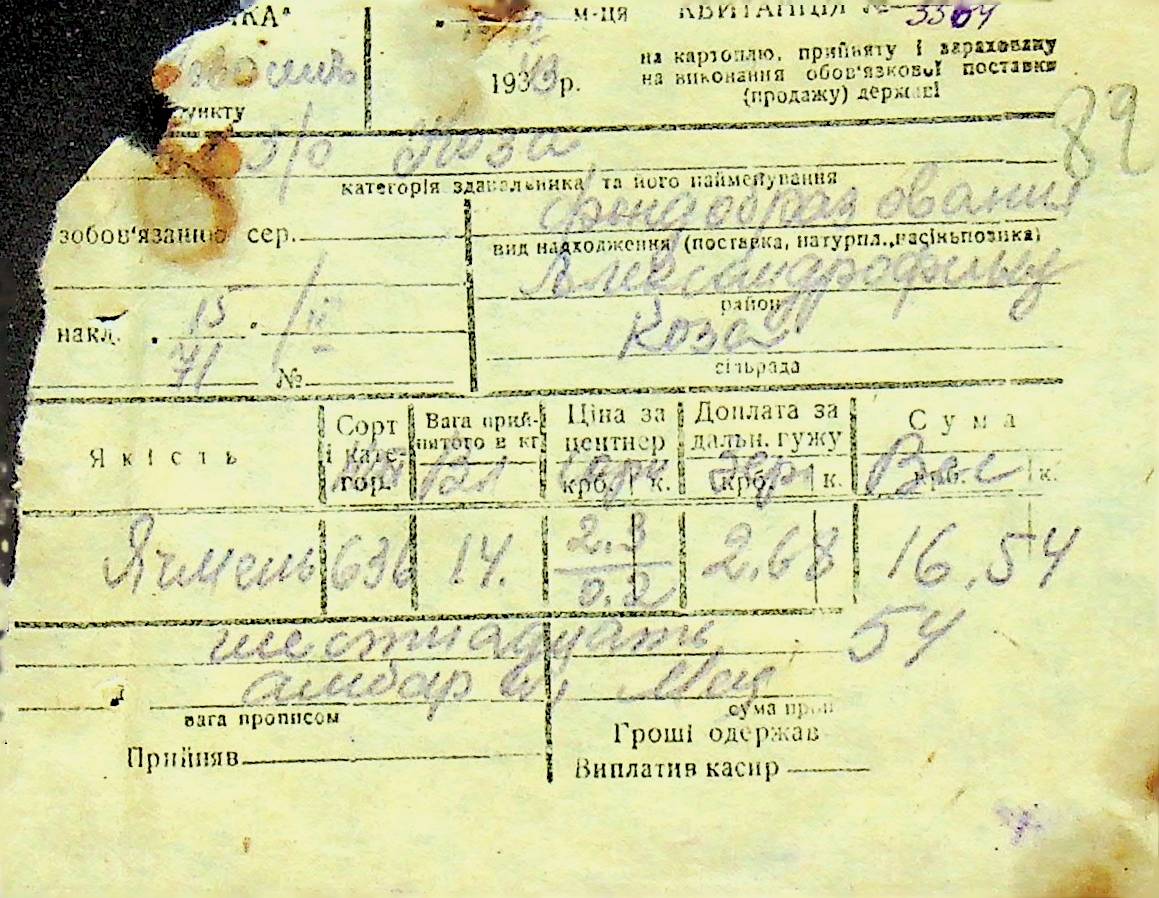 КА"
м-ця КВИТАНЦІЯ № 3364
1943 р.
на картоплю, прийняту і зараховану
на виконання обов'язкової поставки
(продажу) державі
пункту
з/о Коза
категорія здавальника та його найменування
зобов'язанню сер.
фондобразования
вид надходження (поставка, натурпл., насіньпозика)
Александрофельд
район
накд. " 15 " / II
Коза
сільрада
71 №
89
Якість
Сорт і катего-гор.
Вага прий-нятого в кг
Ціна за центнер крб. к.
Доплата за дальн. гужу крб. к.
Сума крб. к.
Вл Зерн Вес
Ячмень 636 14. 2.3 0.2 2.68 16.54
шестнадцать 54
амбар
вага прописом
сума проп
Гроші одержав
Прийняв
Виплатив касир